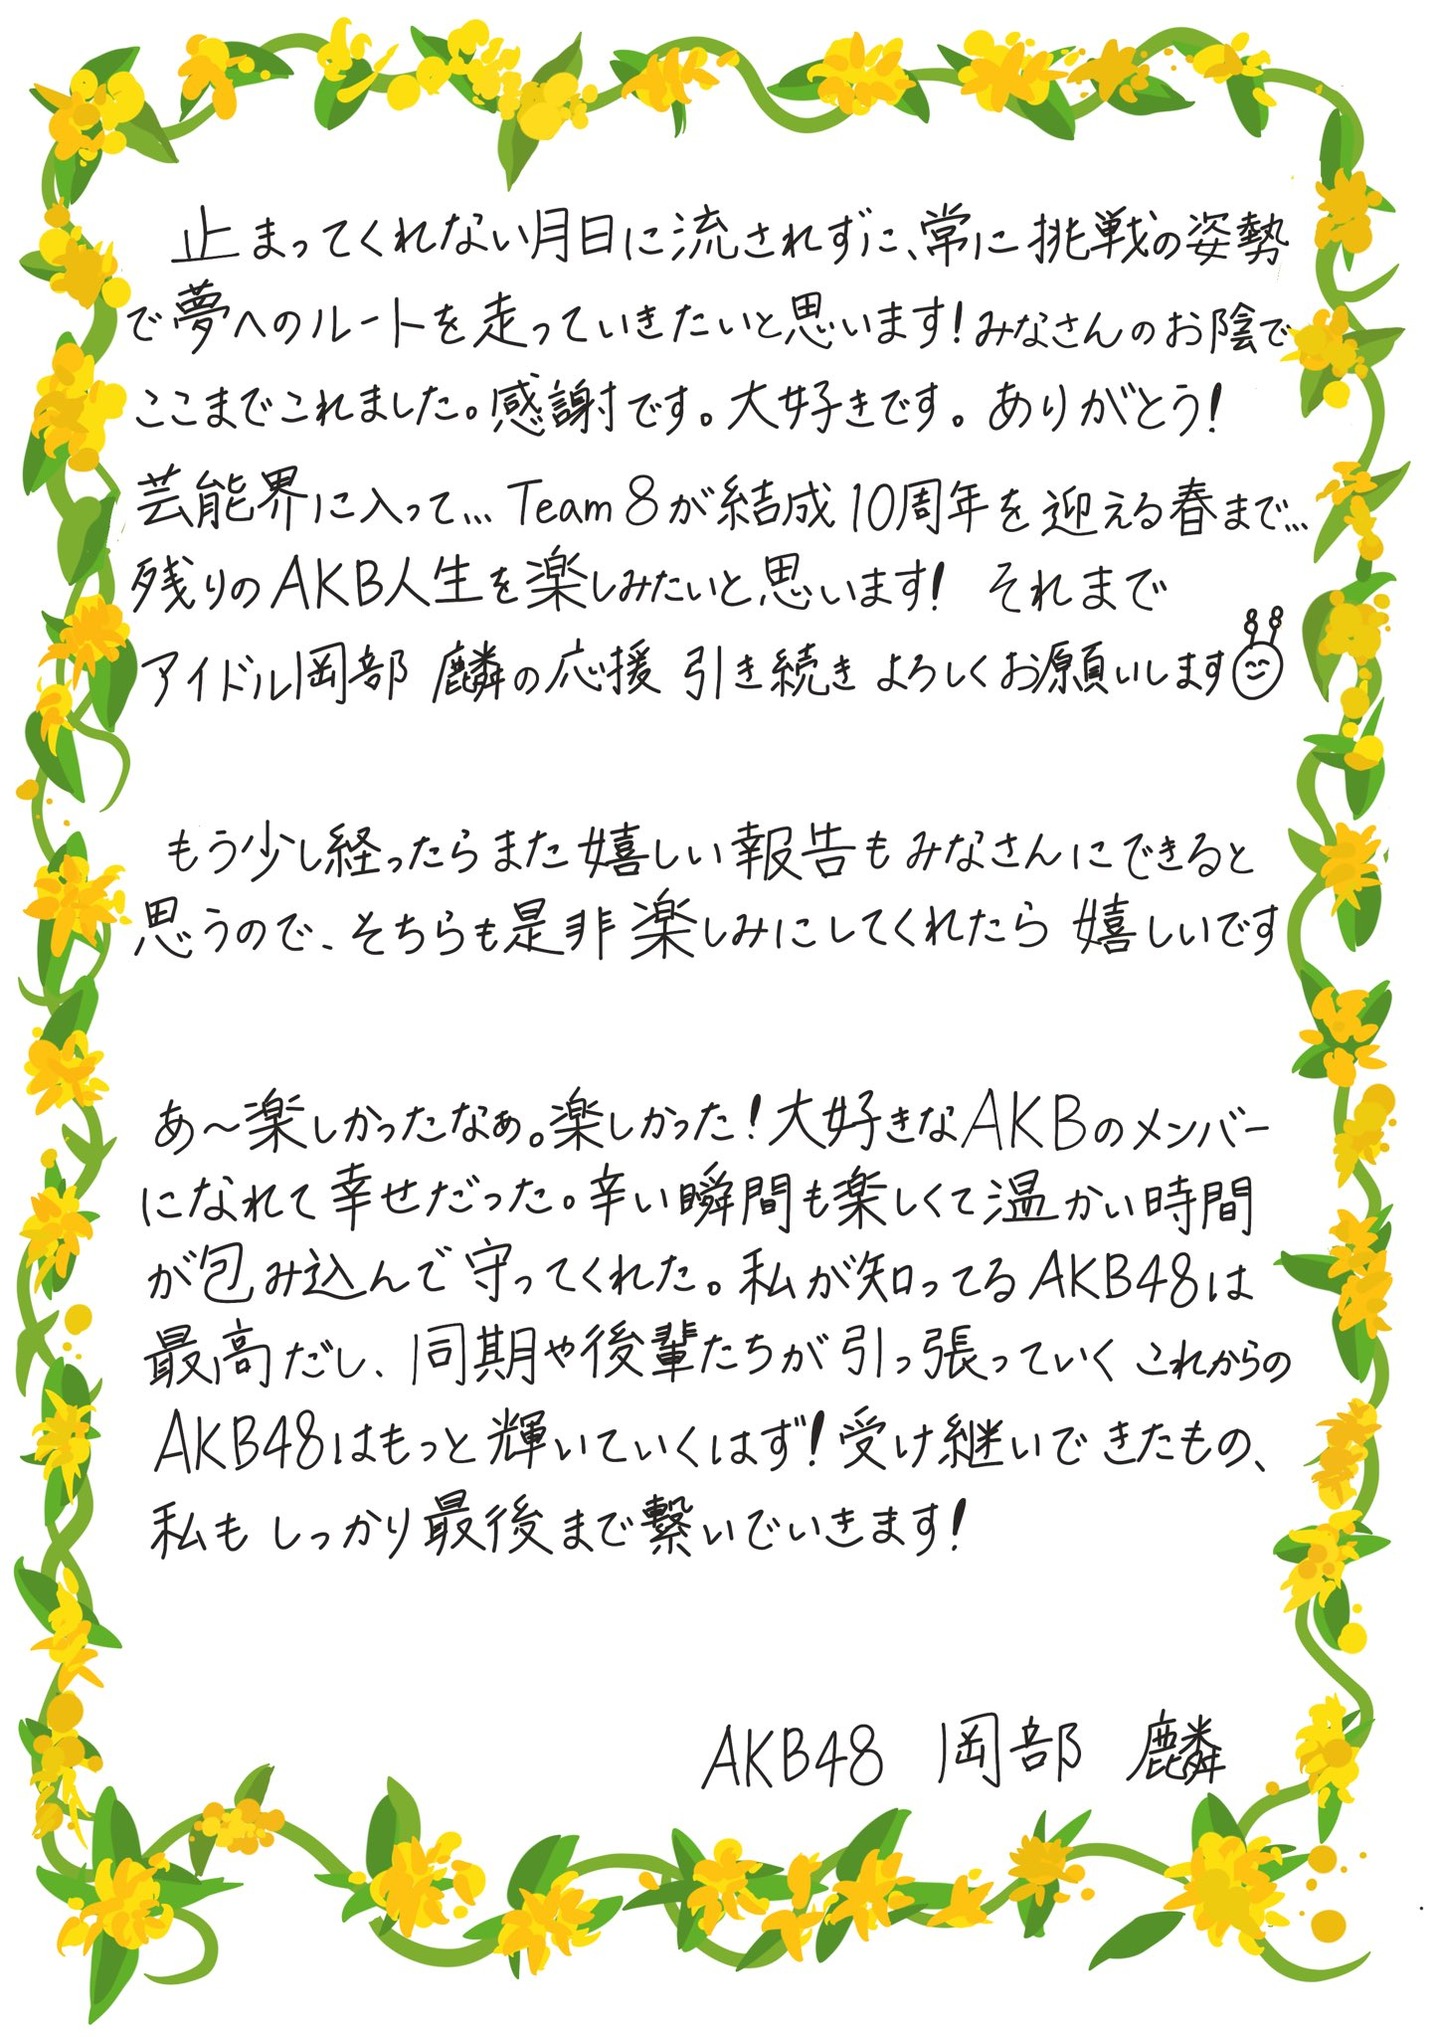 止まってくれない月日に流されずに、常に挑戦の姿勢
で夢へのルートを走っていきたいと思います!みなさんのお陰で
ここまでこれました。感謝です。大好きです。ありがとう!
芸能界に入って... Team 8が結成10周年を迎える春まで...
残りのAKB人生を楽しみたいと思います! それまで
アイドル岡部 麟の応援 引き続き よろしくお願いします
もう少し経ったらまた嬉しい報告もみなさんにできると
思うので、そちらも是非楽しみにしてくれたら 嬉しいです
あ〜楽しかったなぁ。楽しかった!大好きなAKBのメンバー
になれて幸せだった。辛い瞬間も楽しくて温かい時間
が包み込んで守ってくれた。私が知ってるAKB48は
最高だし、同期や後輩たちが引っ張っていく これからの
AKB48はもっと輝いていくはず!受け継いできたもの、
私も しっかり最後まで繋いでいきます!
AKB48 岡部 麟